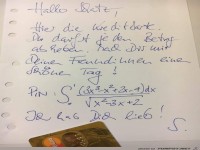 Hallo Schatz,
Hier die Kreditkarte.
Du darfst jeden Betrag
abheben. Mach Dir mit
Deinen Freundinnen einen
schönen Tag!
Pin: ∫₀¹ (3x³-x²+2x-4)dx / √(x²-3x+2)
Ich Dich lieb!
S.